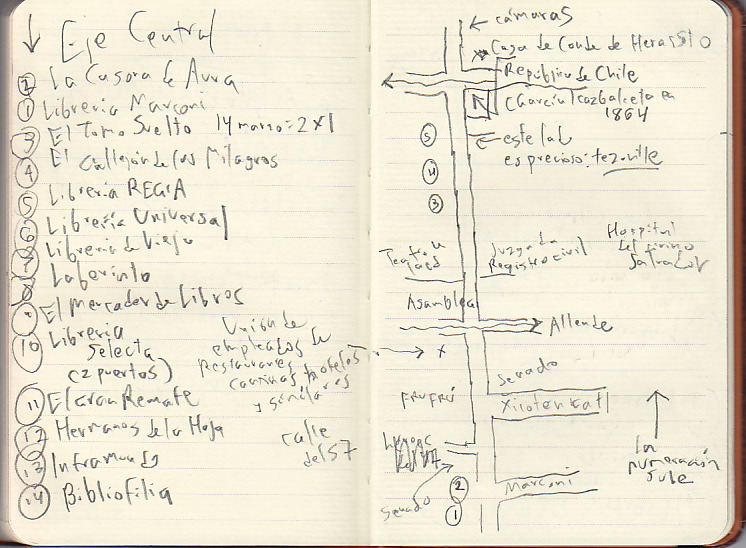 ↓ Eje Central
② La Casona de Aura
① Librería Marconi
3 El Tomo Suelto 14 marzo = 2x1
④ El Callejón de los Milagros
⑤ Librería REGIA
⑥ Librería Universal
Librería de Viejo
Laberinto
El Mercader de Libros
⑩ Librería
Selecta
(2 puertos)
Unión de
empleados de
restaurantes
cantinas, hoteles
y similares
⑪ El Gran Remate
⑫ Hermanos de la Hoja
⑬ Inframundo
⑭ Bibliofilia
calle
del 57
← cámaras
Casa de Conde de Heras S10
República de Chile
García Icazbalceta en
1864
⑤
④
③
← este lab
es precioso: tezoville
Juzgado
Registro civil
Hospital
del divino
Salvador
Asamblea
Allende
→ x
Senado
Xicoténcatl
FRUFRÚ
La
numeración
sube
Senado
Marconi
②
①